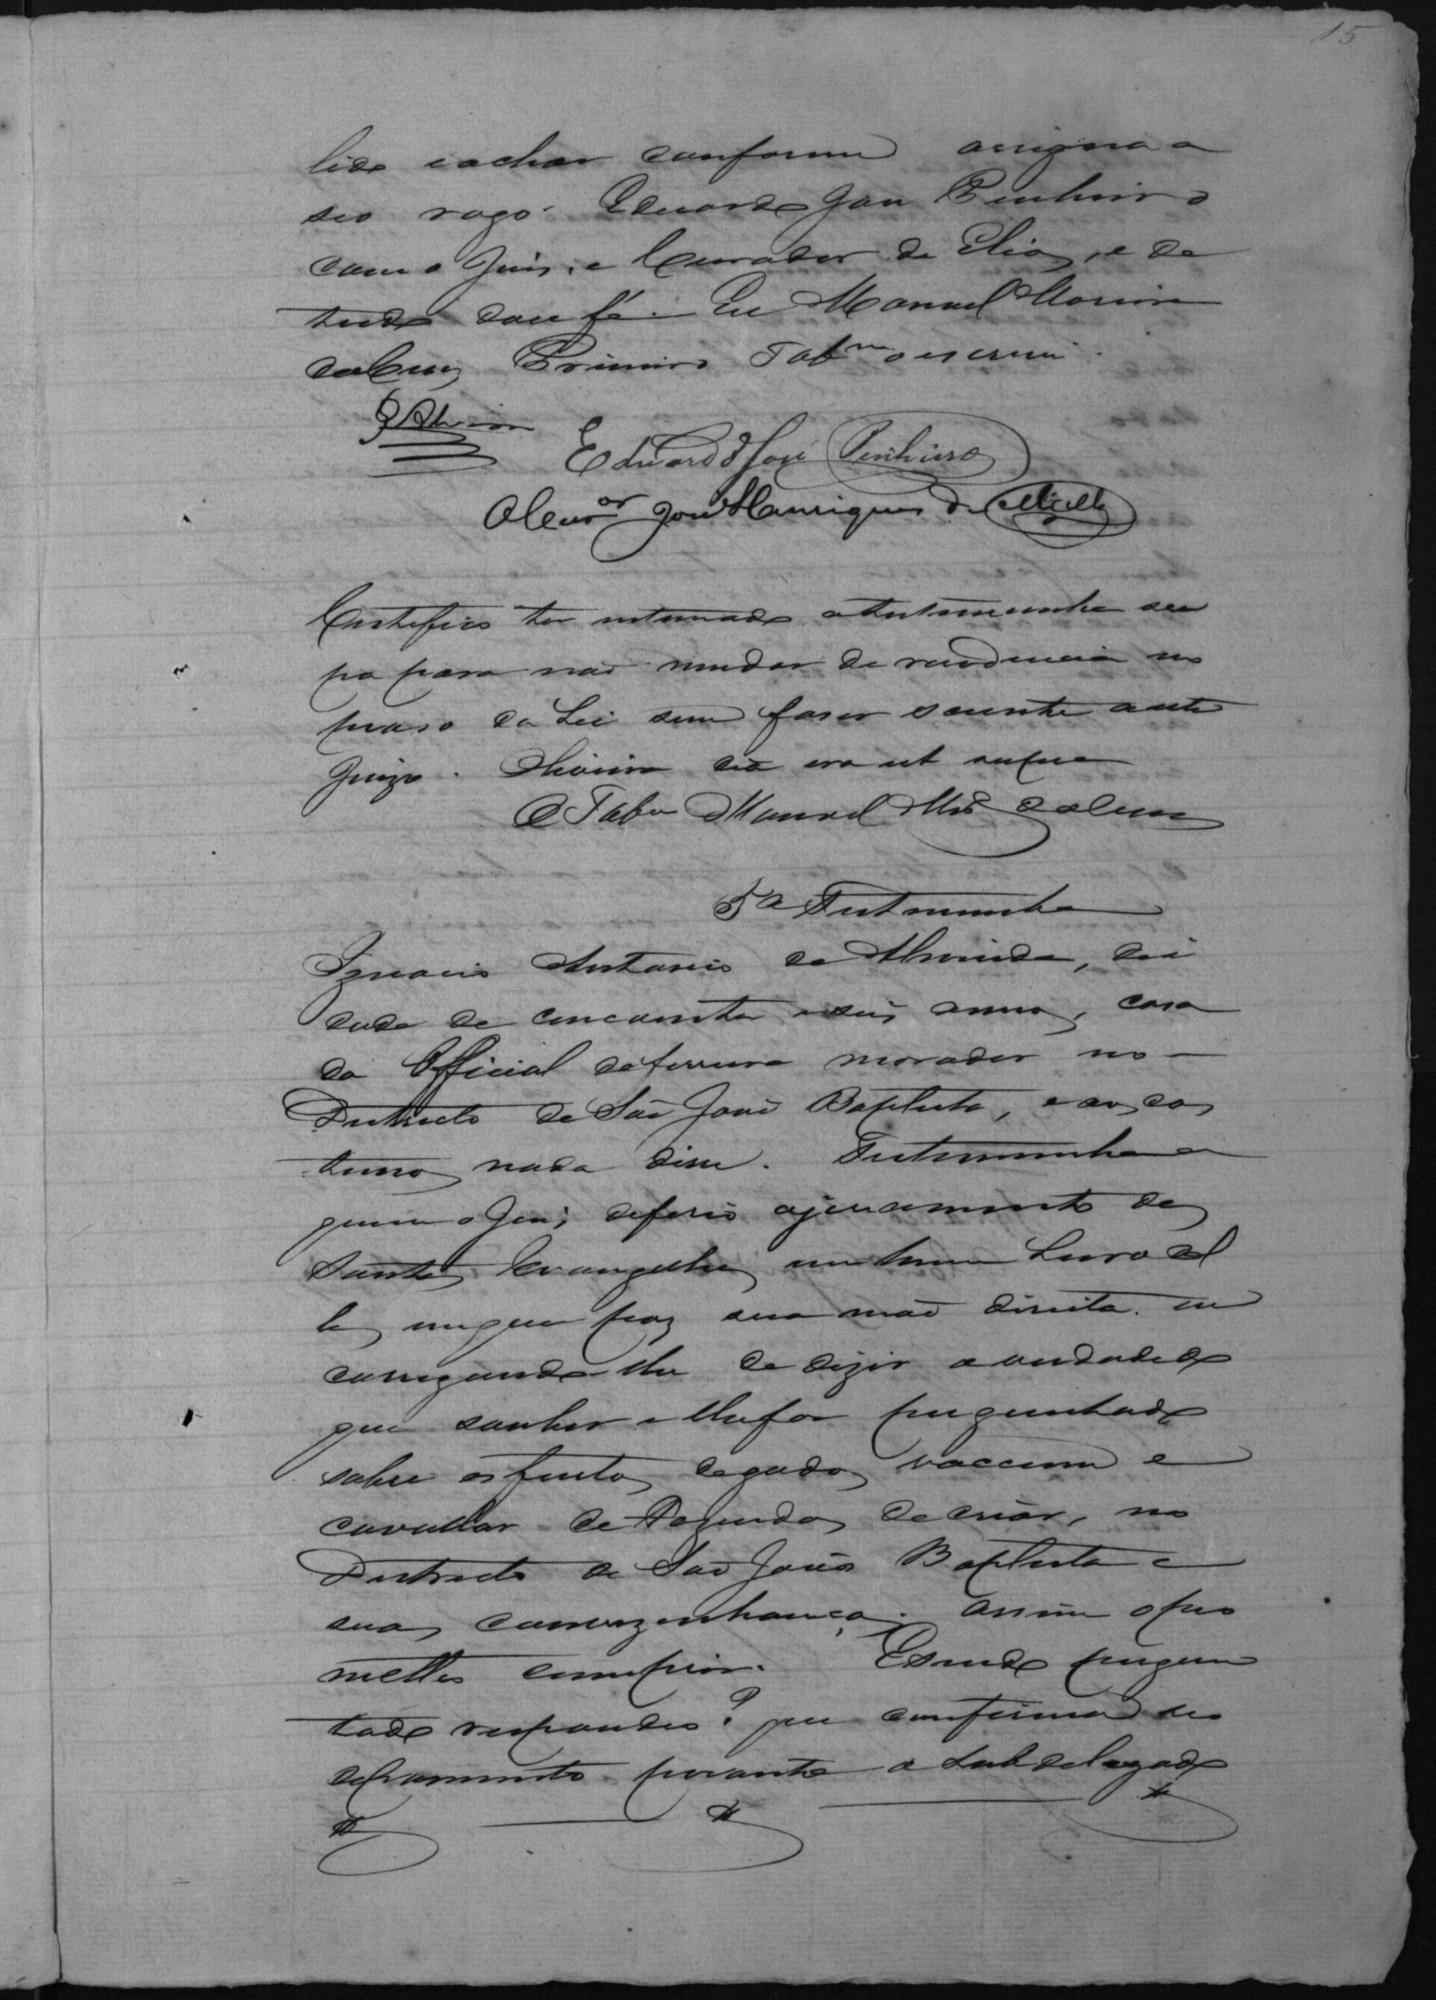 15
lido e achar conforme assigna a
seo rogo Eduardo José Penheiro
com o Juis, e Curador de Elias, e de
tudo dou fé. Eu Manoel Moreira
da Cruz Primeiro Tab.m o escrevi.
Eduardo José Penheiro
O Cur.or José Henriques de Mello
Certefico ter intimado a testemunha su
pra para não mudar de residencia no
praso da Lei sem faser sciente a este
Juizo. Oliveira dia era ut supra
O Tab.m Manoel Mra da Cruz
5a Testemunha
Ignacio Antonio de Almeida, de i
dade de cincoenta e seis annos, casa
do Official de ferreiro morador no
Districto de São João Baptista, e aos cos
tumes nada disse. Testemunha a
quem o Juis deferio o juramento dos
Santos Evangelhos em hum Livro del
les em que poz sua mão direita, en
carregando-lhe de dizer a verdade do
que souber e lhe for perguntado
sobre os furtos de gados vaccum e
cavallar de Fazendas de criar, no
Districto de São João Baptista e
suas comvezenhanças. assim o pro
metteo comprir. E sendo pergun
tado respondeo? que confirma seo
depoimento perante o Subdelegado